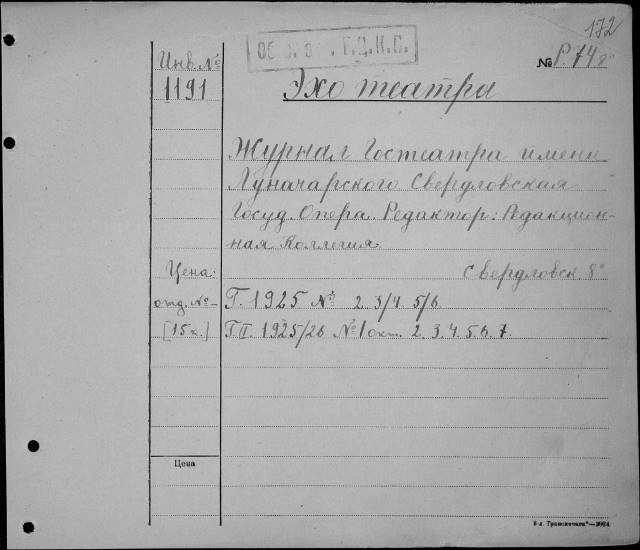 172
Г.Ц.К.П.
Инв. №
1191
№ Р. 74
Эхо театра
Журнал Гостеатра имени
Луначарского Свердловская
Госуд. Опера. Редактор: Редакцион-
ная Коллегия.
Цена:
Свердловск. 8°
отд. №–
Г. 1925 № 2. 3/4. 5/6
[15 к.]
Г.II. 1925/26 № 1 окт. 2. 3. 4. 5. 6. 7.
Цена